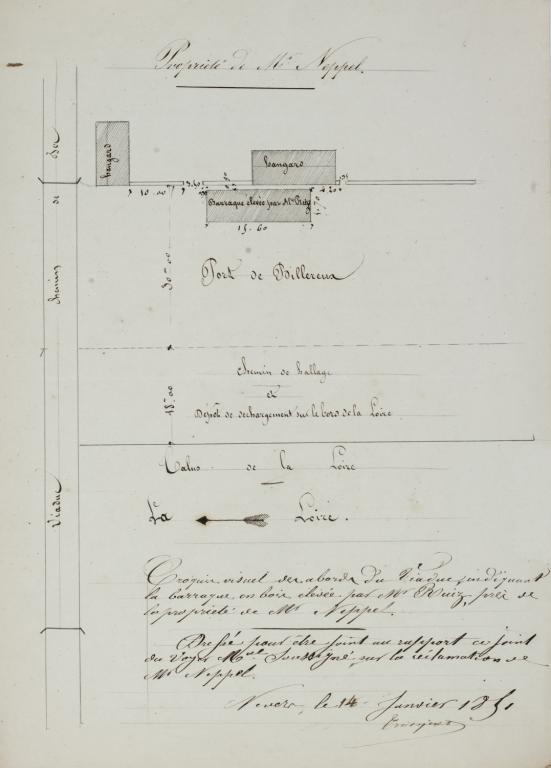 Propriété de Mr Neppel.
hangard
hangard
10.00
3.60
4.20
Barraque elevée par Mr Ruiz
4.70
15.60
30.00
Port de Billereux
chemin de hallage
et
Dépôt de dechargement sur le bord de la Loire
18.00
Talus de la Loire
La Loire.
Viaduc
chemin
de
fer
Croquis visuel des abords du Viaduc, indiquant
la barraque en bois elevée par Mr Ruiz, près de
la propriété de Mr Neppel.
Dressé pour être joint au rapport ci joint
du Voyer Mpal Soussigné, sur la réclamation de
Mr Neppel.
Nevers, le 14 Janvier 1851